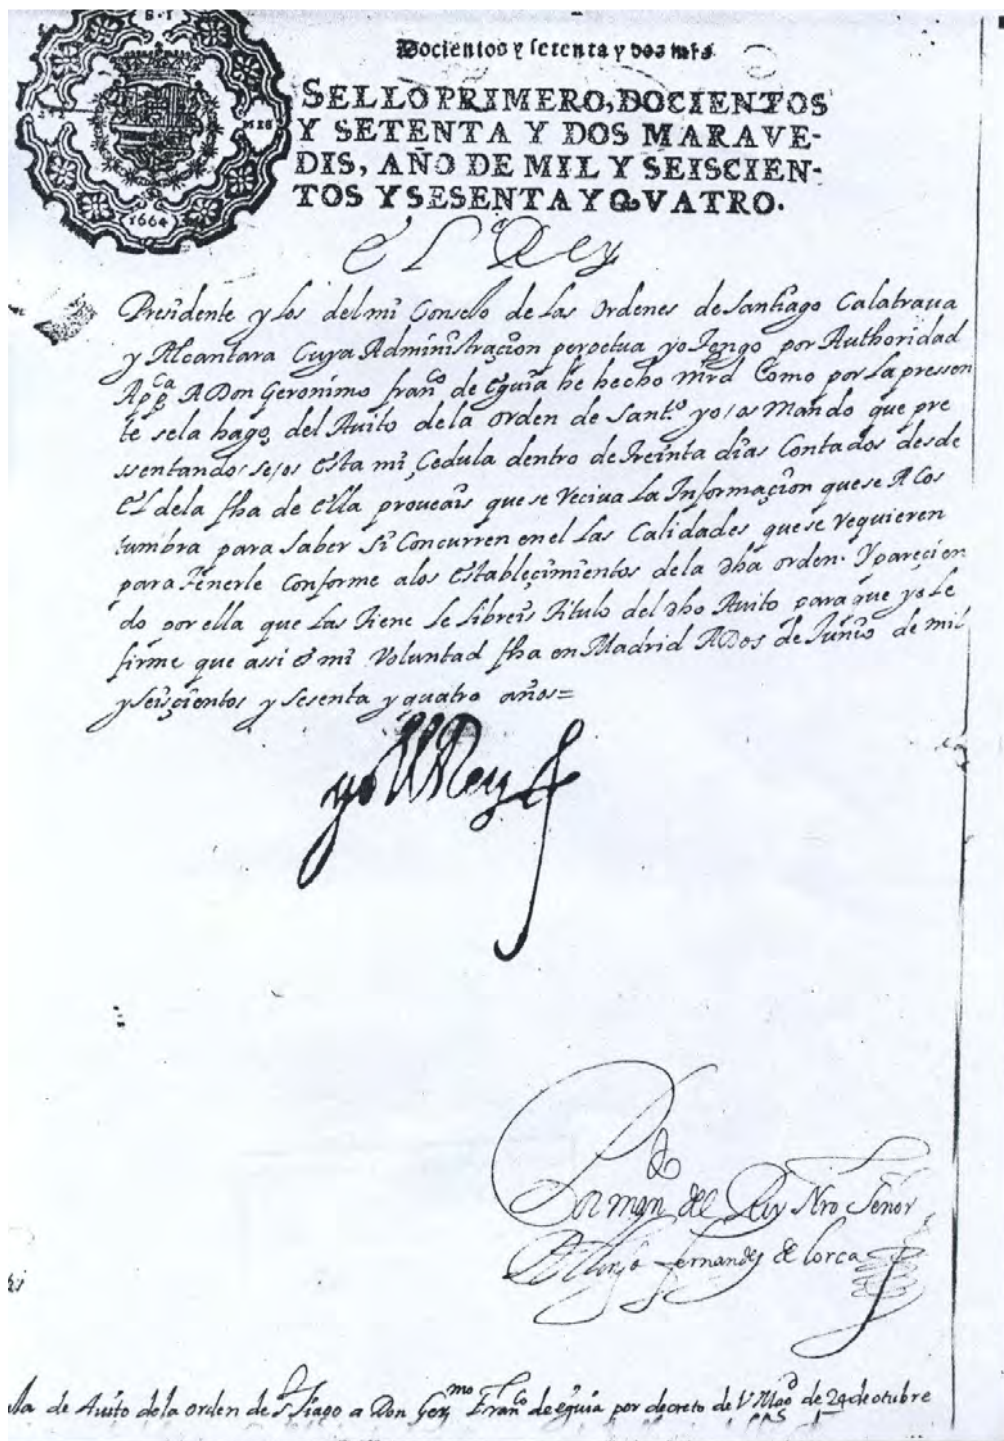 S·I
Docientos y setenta y dos mrs.
272
MIS
1664
SELLO PRIMERO, DOCIENTOS
Y SETENTA Y DOS MARAVE-
DIS, AÑO DE MIL Y SEISCIEN-
TOS Y SESENTA Y QVATRO.
El Rey
Presidente y los del mi Consejo de las ordenes de Santiago Calatraua
y Alcantara Cuya Administraçion perpetua yo Tengo por Authoridad
App.ca A Don Geronimo fran.co de eguia he hecho mrd Como por la pressen
te se la hago, del Auito de la orden de Sant.o yo os Mando que pre
ssentandoseos esta mi Çedula dentro de treinta dias Contados desde
el de la fha de ella proueais que se Reciua La Informaçion que se A Cos
tumbra para saber si Concurren en el Las Calidades que se requieren
para tenerle Conforme a los establecimientos de la dha orden. Y pareçien
do por ella que las tiene le libreis titulo del dho Auito para que yo le
firme que assi es mi Voluntad fha en Madrid A Dos de Junio de mil
y seisçientos y sesenta y quatro años=
yo el Rey
Por mando del Rey Nro Señor
Alonso fernandez de lorca
de Auito de la orden de Stiago a Don Germo Franco de eguia por decreto de V Magd de 24 de otubre